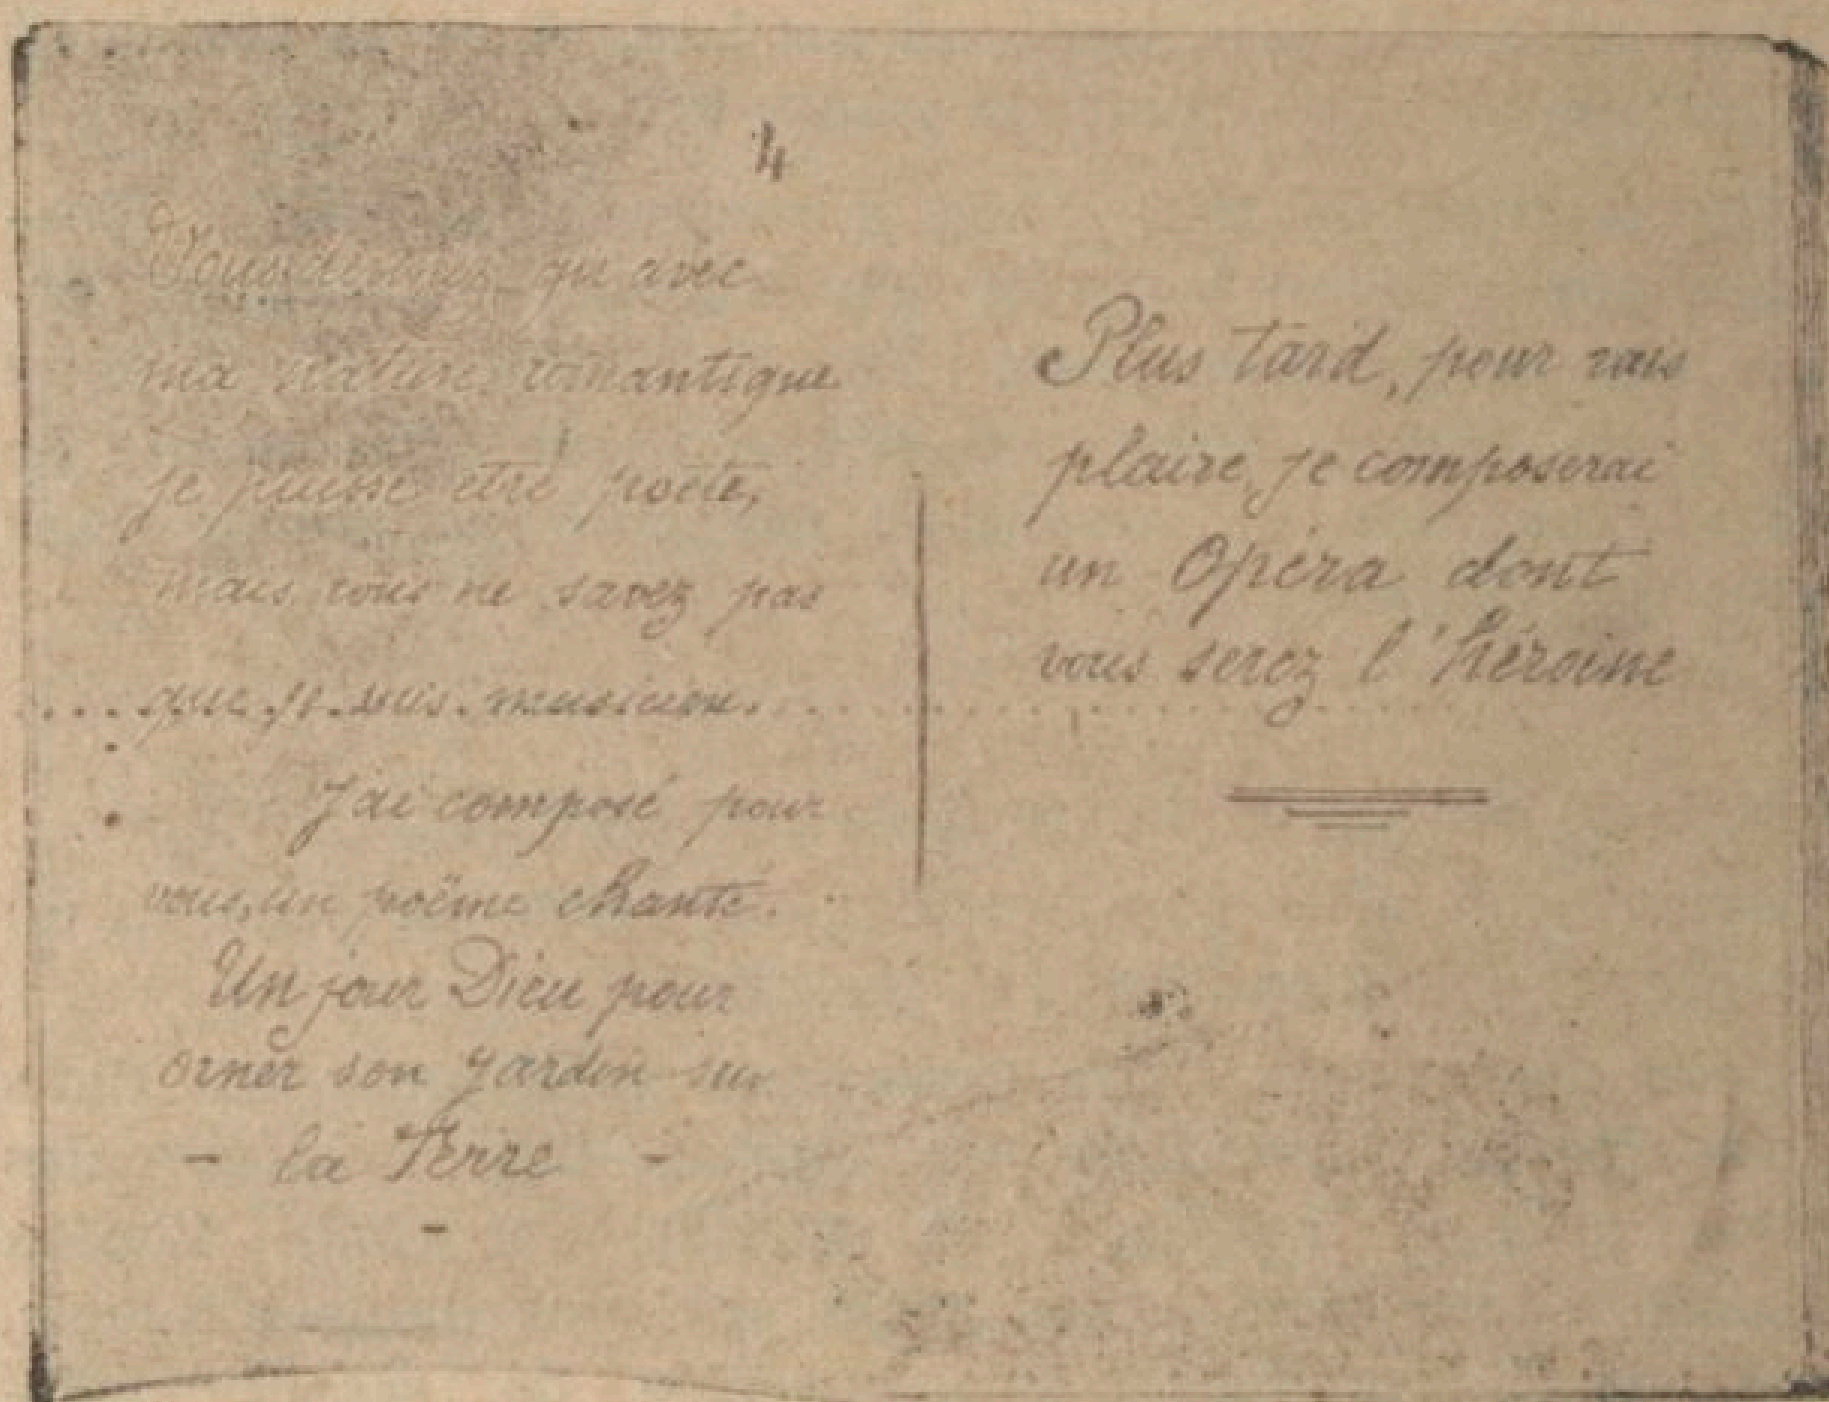 4
Vous devinez qu'avec
ma nature romantique
je puisse etre poëte,
mais vous ne savez pas
que je suis musicien.
J'ai composé pour
vous, un poëme chanté.
Un jour Dieu pour
orner son Jardin sur
- la Terre -
-
Plus tard, pour vous
plaire, je composerai
un Opéra dont
vous serez l'héroine